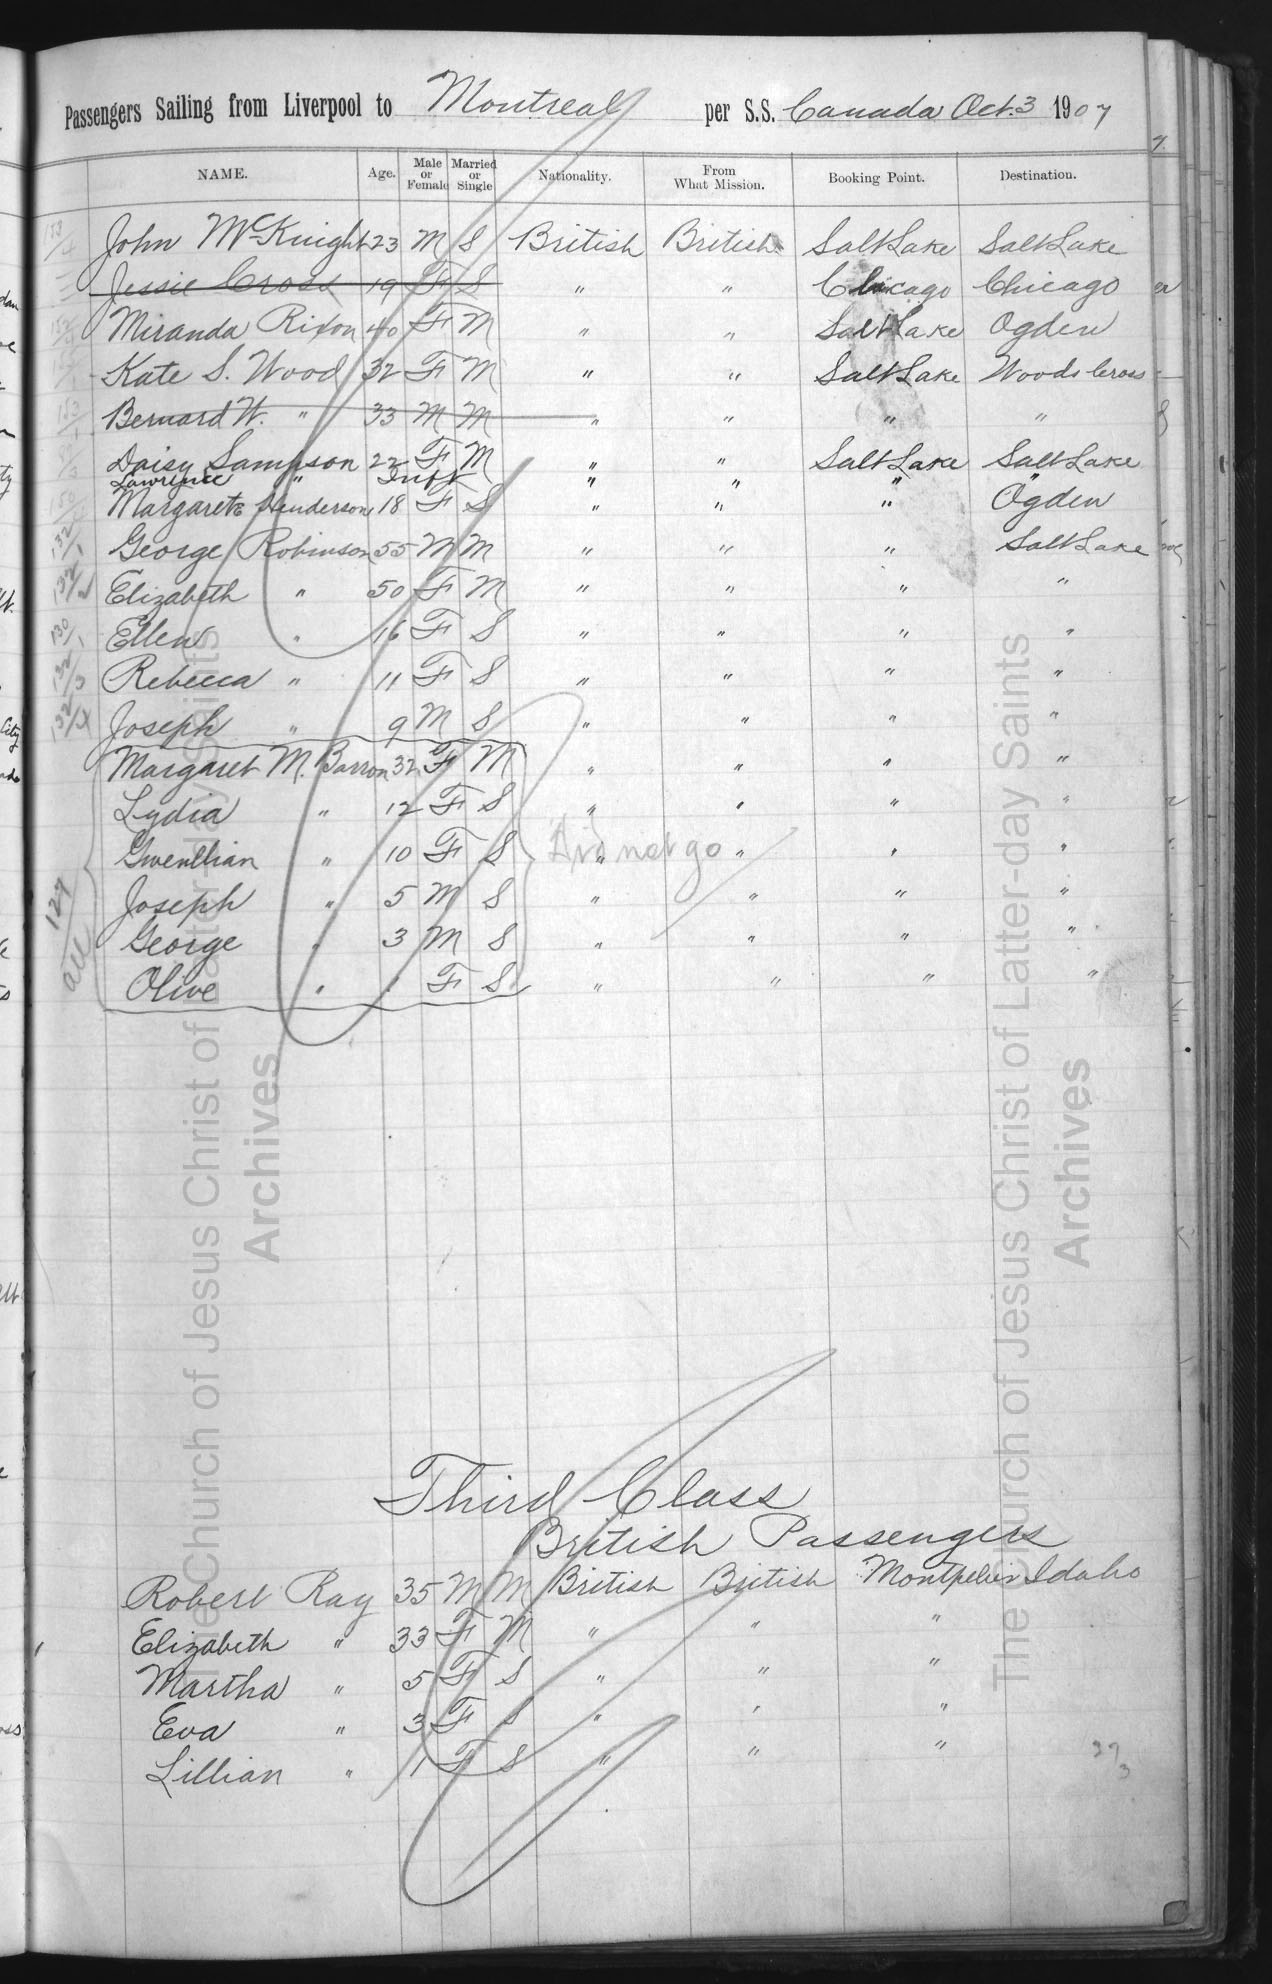 Passengers Sailing from Liverpool to Montreal per S.S. Canada Oct. 3 1907
NAME. Age. Male or Female Married or Single Nationality. From What Mission. Booking Point. Destination.
John McKnight 23 M S British British Salt Lake Salt Lake
Jessie Cross 19 F S " " Chicago Chicago
Miranda Rixon 40 F M " " Salt Lake Ogden
Kate S. Wood 32 F M " " Salt Lake Woods Cross
Bernard W. " 33 M M " " " "
Daisy Sampson 22 F M " " Salt Lake Salt Lake
Lawrence " Inft " " " "
Margaret Henderson 18 F S " " " Ogden
George Robinson 55 M M " " " Salt Lake
Elizabeth " 50 F M " " " "
Ellen " 16 F S " " " "
Rebecca " 11 F S " " " "
Joseph " 9 M S " " " "
Margaret M. Barron 32 F M " " " "
Lydia " 12 F S " " " "
Gwenllian " 10 F S " " " "
Did not go
Joseph " 5 M S " " " "
George " 3 M S " " " "
Olive " F S " " " "
127
all
Third Class
British Passengers
Robert Ray 35 M M British British Montpelier Idaho
Elizabeth " 33 F M " " "
Martha " 5 F S " " "
Eva " 3 F S " " "
Lillian " 1 F S " " "
The Church of Jesus Christ of Latter-day Saints
Archives
The Church of Jesus Christ of Latter-day Saints
Archives